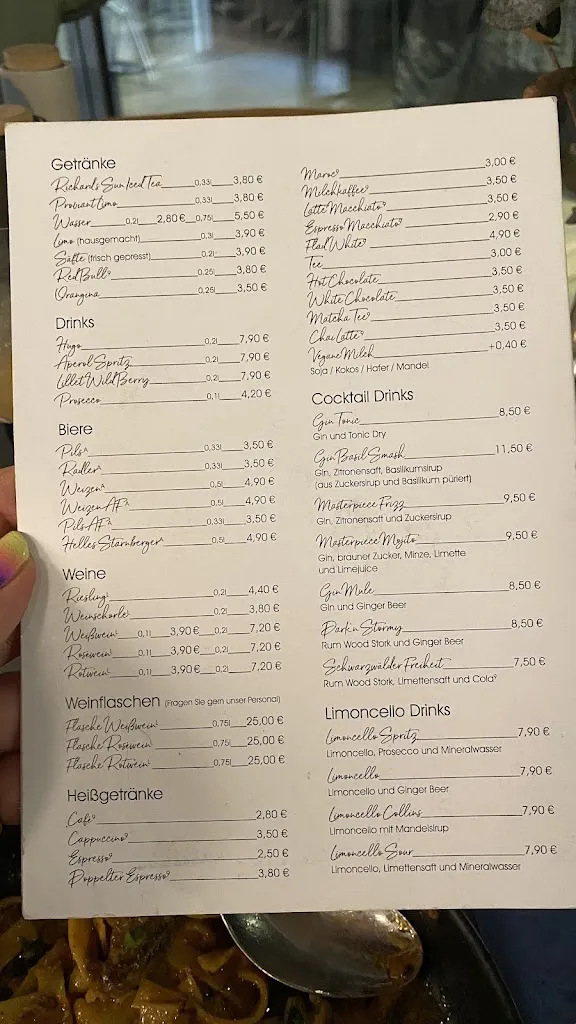 Getränke
Richards Sun Iced Tea 0,33l 3,80 €
Proviant Limo 0,33l 3,80 €
Wasser 0,2l 2,80 € 0,75l 5,50 €
Limo (hausgemacht) 0,3l 3,90 €
Säfte (frisch gepresst) 0,2l 3,90 €
Red Bull⁹ 0,25l 3,80 €
Orangina 0,25l 3,50 €
Drinks
Hugo 0,2l 7,90 €
Aperol Spritz 0,2l 7,90 €
Lillet Wild Berry 0,2l 7,90 €
Prosecco 0,1l 4,20 €
Biere
Pils ᴬ 0,33l 3,50 €
Radler ᴬ 0,33l 3,50 €
Weizen ᴬ 0,5l 4,90 €
Weizen AF ᴬ 0,5l 4,90 €
Pils AF ᴬ 0,33l 3,50 €
Helles Starnberger ᴬ 0,5l 4,90 €
Weine
Riesling 0,2l 4,40 €
Weinschorle 0,2l 3,80 €
Weißwein 0,1l 3,90 € 0,2l 7,20 €
Roséwein 0,1l 3,90 € 0,2l 7,20 €
Rotwein 0,1l 3,90 € 0,2l 7,20 €
Weinflaschen (Fragen Sie gern unser Personal)
Flasche Weißwein 0,75l 25,00 €
Flasche Roséwein 0,75l 25,00 €
Flasche Rotwein 0,75l 25,00 €
Heißgetränke
Café⁹ 2,80 €
Cappuccino⁹ 3,50 €
Espresso⁹ 2,50 €
Doppelter Espresso⁹ 3,80 €
Maroc⁹ 3,00 €
Milchkaffee⁹ 3,50 €
Latte Macchiato⁹ 3,50 €
Espresso Macchiato⁹ 2,90 €
Flad White⁹ 4,90 €
Tee 3,00 €
Hot Chocolate 3,50 €
White Chocolate 3,50 €
Matcha Tee⁹ 3,50 €
Chai Latte⁹ 3,50 €
Vegane Milch +0,40 €
Soja / Kokos / Hafer / Mandel
Cocktail Drinks
Gin Tonic 8,50 €
Gin und Tonic Dry
Gin Basil Smash 11,50 €
Gin, Zitronensaft, Basilikumsirup
(aus Zuckersirup und Basilikum püriert)
Masterpiece Frizz 9,50 €
Gin, Zitronensaft und Zuckersirup
Masterpiece Mojito 9,50 €
Gin, brauner Zucker, Minze, Limette
und Limejuice
Gin Mule 8,50 €
Gin und Ginger Beer
Dark'n Stormy 8,50 €
Rum Wood Stork und Ginger Beer
Schwarzwälder Freiheit 7,50 €
Rum Wood Stork, Limettensaft und Cola⁹
Limoncello Drinks
Limoncello Spritz 7,90 €
Limoncello, Prosecco und Mineralwasser
Limoncello 7,90 €
Limoncello und Ginger Beer
Limoncello Collins 7,90 €
Limoncello mit Mandelsirup
Limoncello Sour 7,90 €
Limoncello, Limettensaft und Mineralwasser